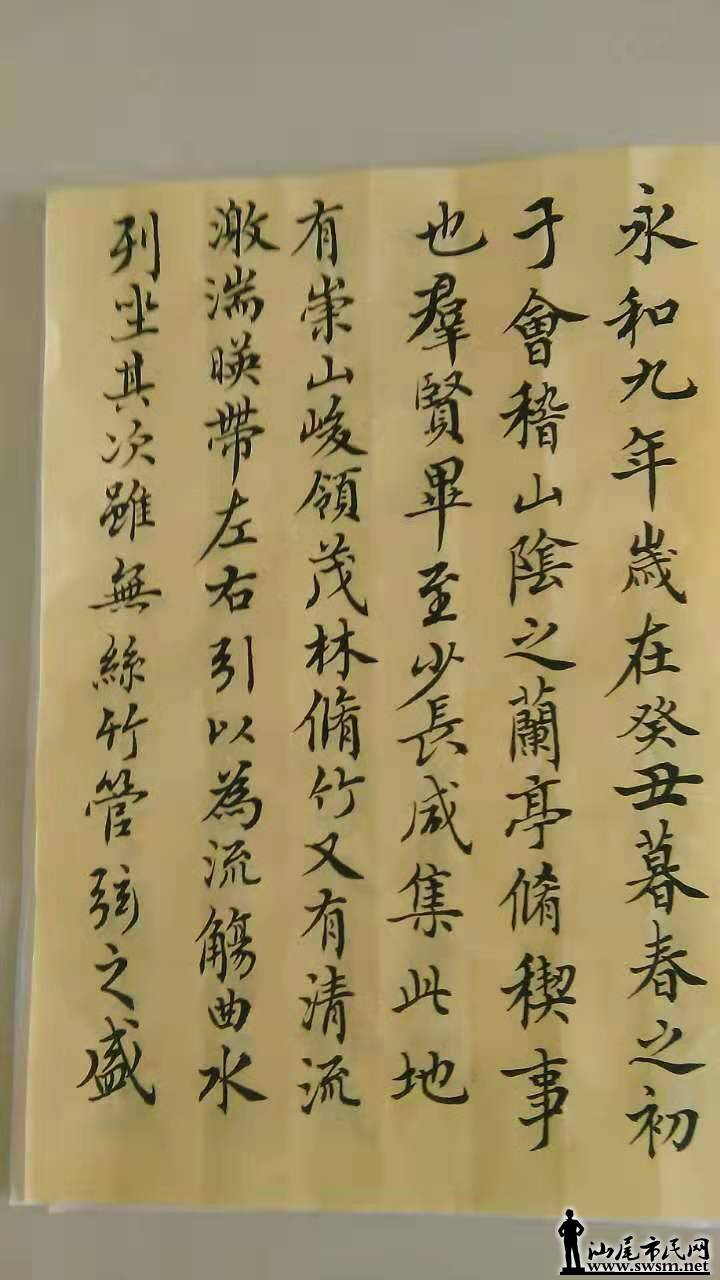 永和九年歲在癸丑暮春之初
于會稽山陰之蘭亭脩稧事
也羣賢畢至少長咸集此地
有崇山峻領茂林脩竹又有清流
激湍暎帶左右引以為流觴曲水
列坐其次雖無絲竹管弦之盛
汕尾市民网
www.swsm.net